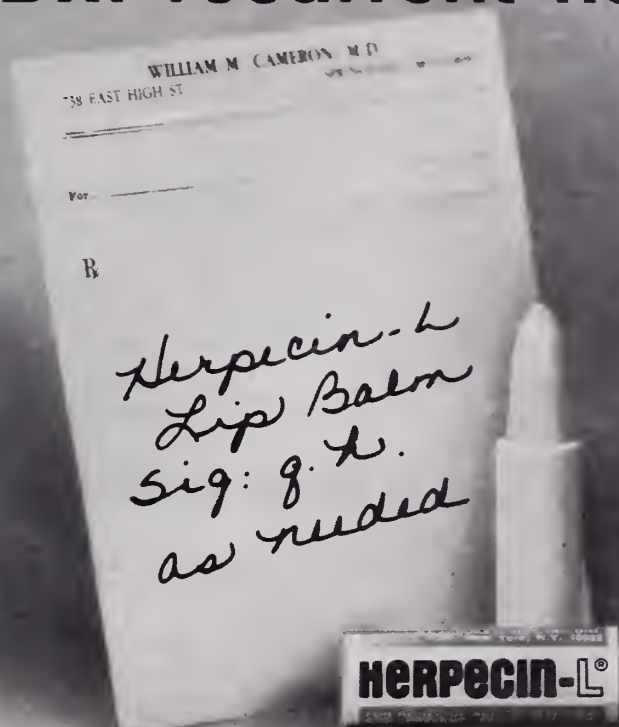 recurrent
WILLIAM M CAMERON M D
738 EAST HIGH ST
For
℞
Herpecin-L
Lip Balm
Sig: q.h.
as needed
HERPECIN-L®